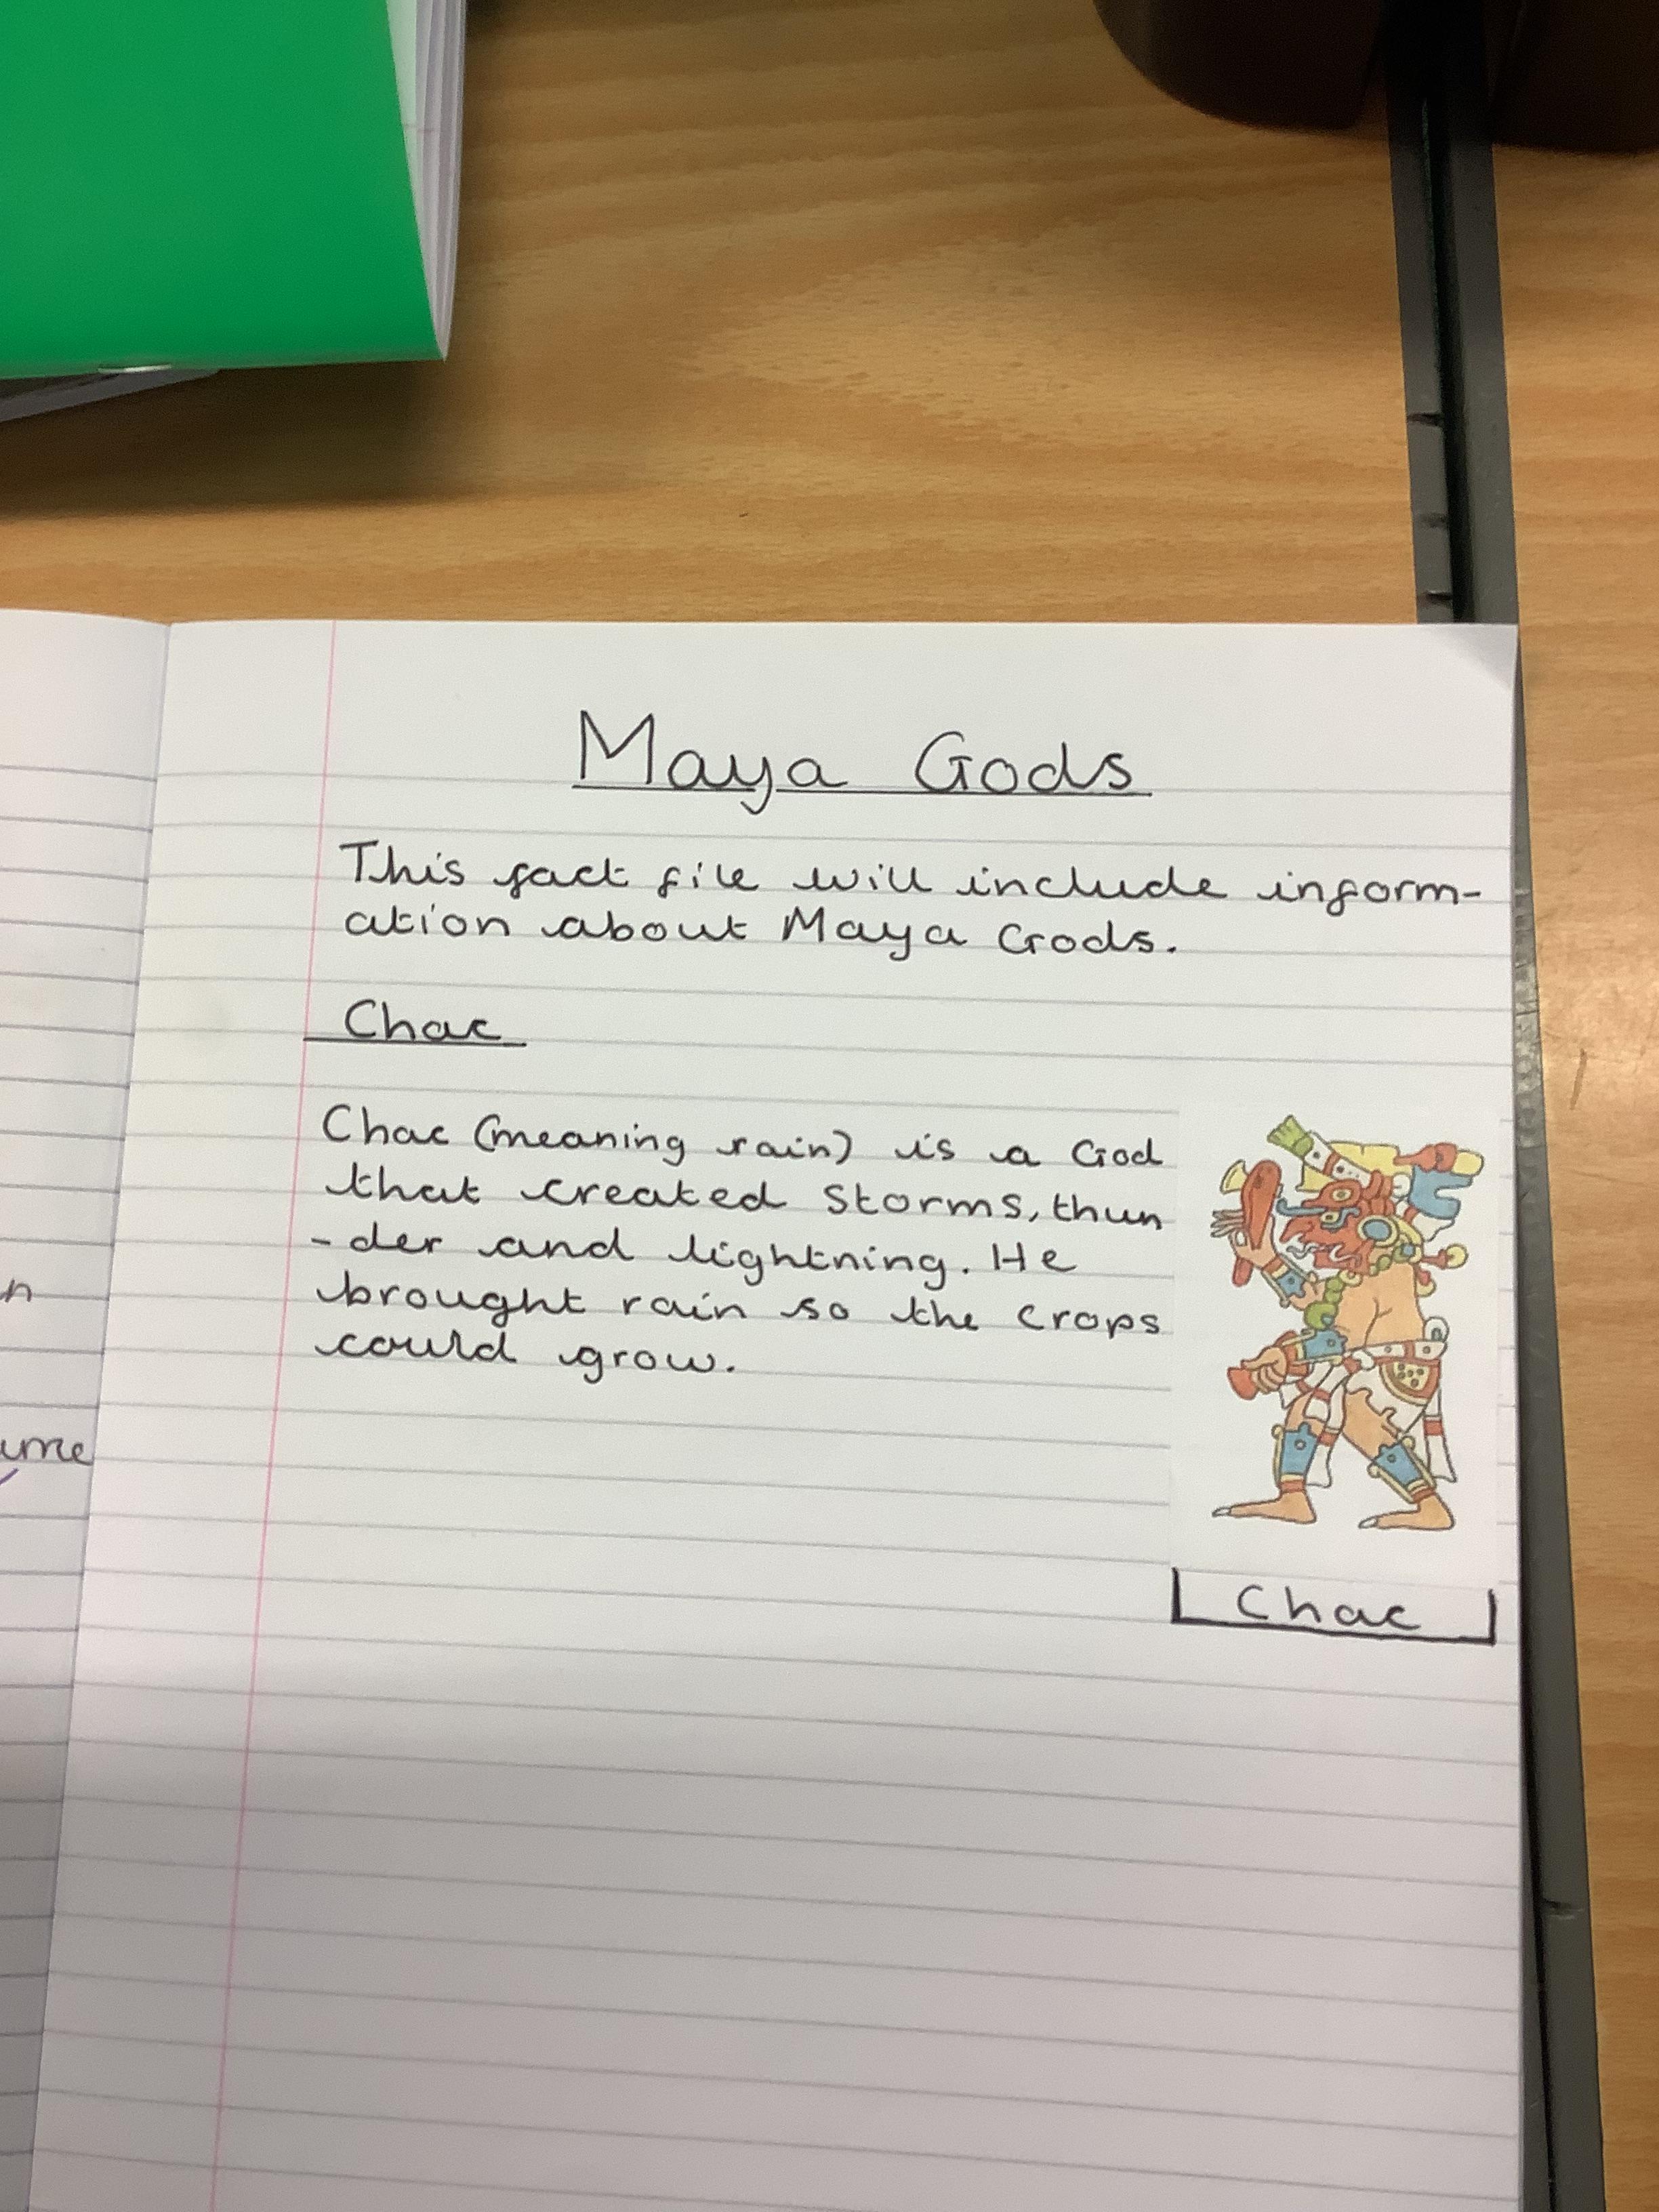 Maya Gods
This fact file will include inform-
ation about Maya Gods.
Chac
Chac (meaning rain) is a God
that created storms, thun
-der and lightning. He
brought rain so the crops
could grow.
Chac